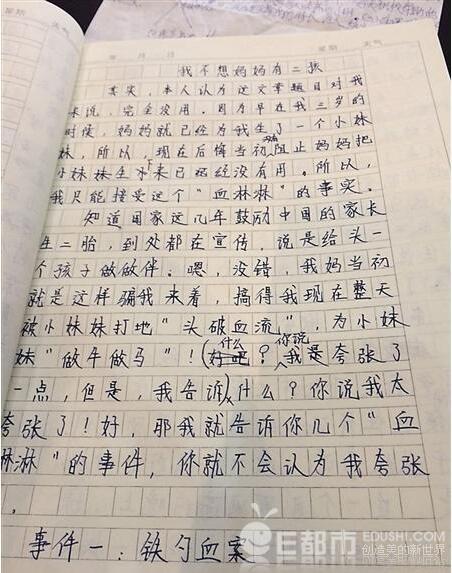 星期 天气
年 月 日 星期 天气
我不想妈妈有二孩
其实，本人认为这文章题目对我
来说，完全没用。因为早在我三岁的
时候，妈妈就已经为我生了一个小妹
妹，所以，现在后悔当初没有阻止妈妈把
小妹妹生下来已经经没有用。所以，
我只能接受这个“血淋淋”的事实。
知道国家这几年鼓励中国的家长
生二胎，到处都在宣传，说是给头一
个孩子做做伴。嗯，没错，我妈当初
就是这样骗我来着，搞得我现在整天
被小妹妹打地“头破血流”，为小妹
妹“做牛做马”！什么？你说我是夸张了
一点，但是，我告诉，什么？你说我太
夸张了！好，那我就告诉你几个“血
淋淋”的事件，你就不会认为我夸张
。
事件一：铁勺血案
E都市 EDUSHI.COM
创造美的新世界